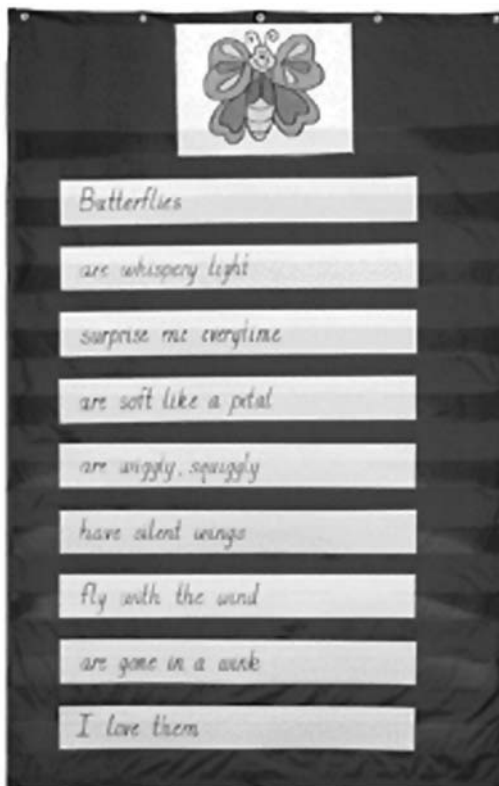 Butterflies
are whispery light
surprise me everytime
are soft like a petal
are wiggly, squiggly
have silent wings
fly with the wind
are gone in a wink
I love them